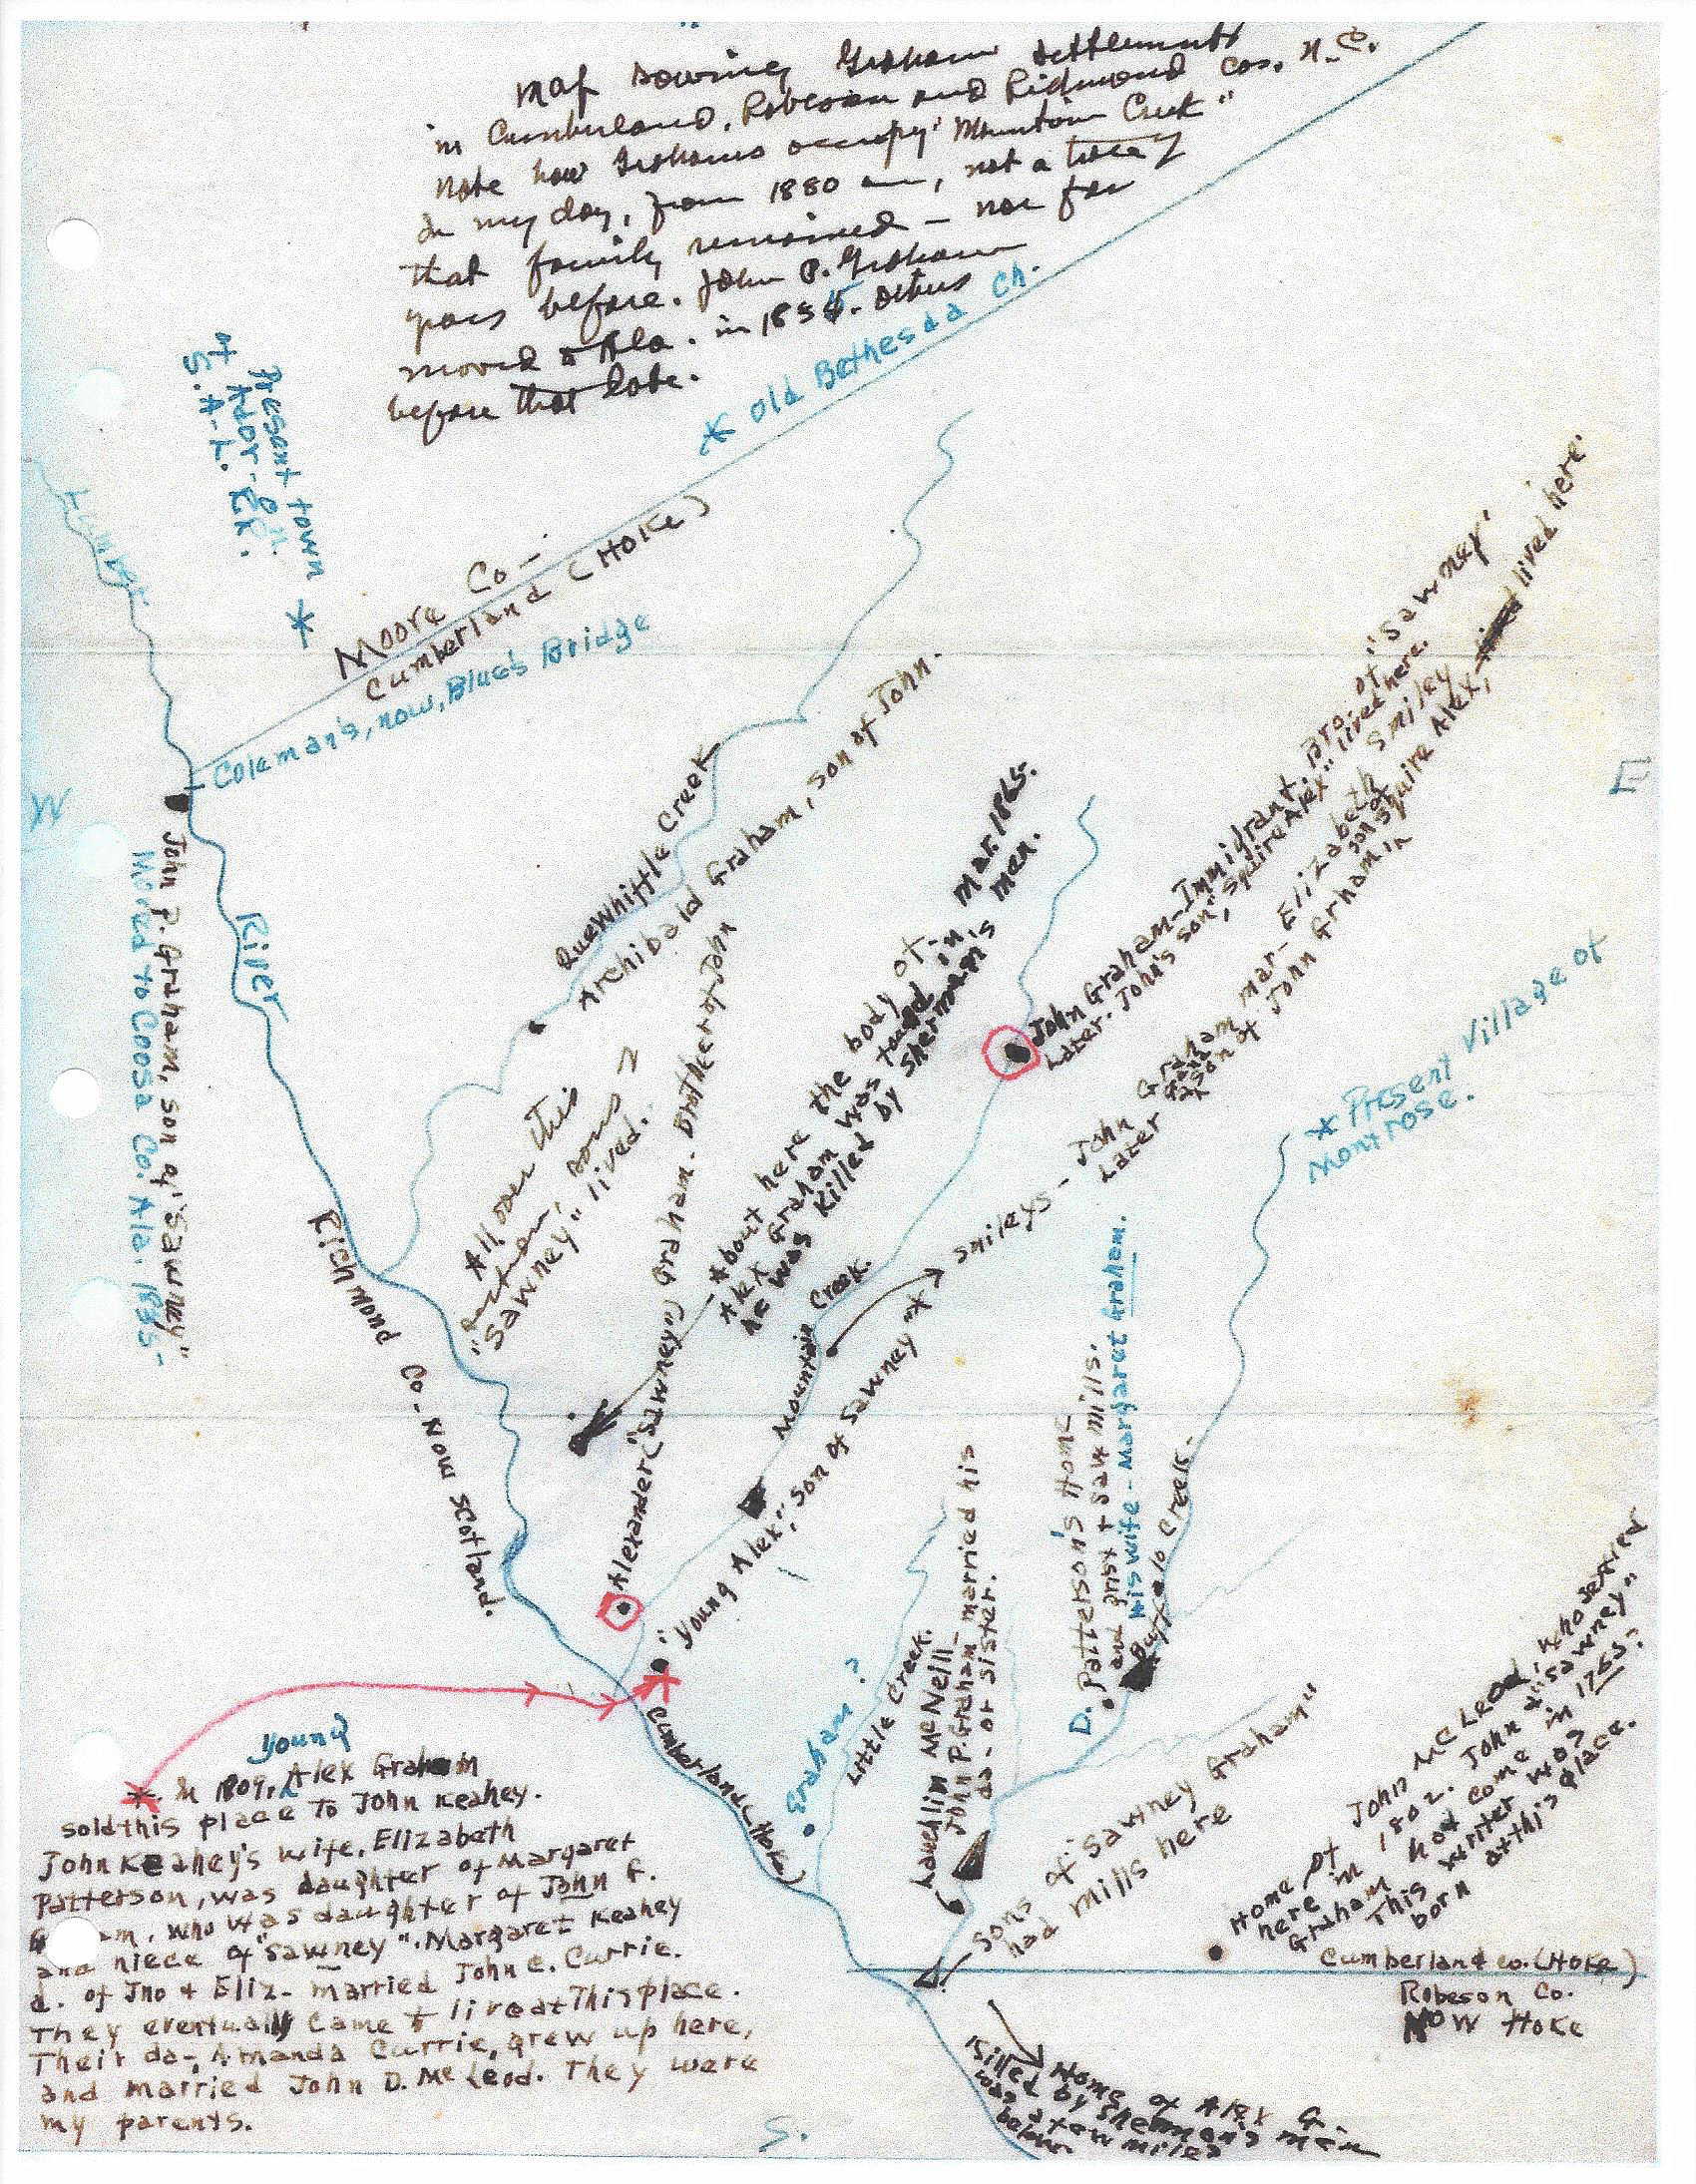 Map Sowing Graham Settlements
in Cumberland, Robeson and Richmond Cos. N.C.
Note how Grahams occupy "Mountain Creek"
In my day, from 1880 on, not a trace of
that family remained - nor for
years before. John P. Graham
moved to Ala. in 1855. Others
before that date.
* Old Bethesda Ch.
Present town
of Ador - on
S.A.L. RR.
*
Lumber
Moore Co -
Cumberland (Hoke)
- Coleman's, now, Blue's Bridge
W
E
John P. Graham, son of "Sawney"
Moved to Coosa Co. Ala. 1855-
River
QueWhiffle Creek
Archibald Graham, son of John.
All over this
section, sons of
"Sawney" lived.
Alexander ("Sawney") Graham. Brother of John
- About here the body of
Alex Graham was found in Mar. 1865.
He was killed by Sherman's men.
John Graham - Immigrant. Bro. of "Sawney".
Later. John's son, "Squire Alex" lived here.
Smileys - John Graham mar- Elizabeth Smiley
Later son of John Grham, Squire Alex, lived here.
* Present Village of
Montrose.
Richmond Co - Now Scotland.
Mountain Creek.
"Young Alex", son of Sawney "*"
D. Patterson's Home
and grist + saw mills.
His wife - Margaret Graham.
Buffalo Creek.
Graham?
Little Creek.
Lauchlin McNeill
John P. Graham married his
da - or sister.
Cumberland (Hoke)
Sons of "Sawney Graham"
had mills here
Home of John McLeod, who settled
here in 1802. John & "Sawney"
Graham had come in 1765.
This writer was
born at this place.
Cumberland Co. (Hoke)
Robeson Co.
Now Hoke
Home of Alex G.
Killed by Sherman's men
was a few miles
below
S.
young
*. In 1809, Alex Graham
sold this place To John Keahey.
John Keahey's wife, Elizabeth
Patterson, was daughter of Margaret
G am, who was daughter of John G.
and niece of "Sawney". Margaret Keahey
d. of Jno + Eliz- married John C. Currie.
They eventually came to live at This place.
Their da-, Amanda Currie, grew up here,
and married John D. McLeod. They were
my parents.